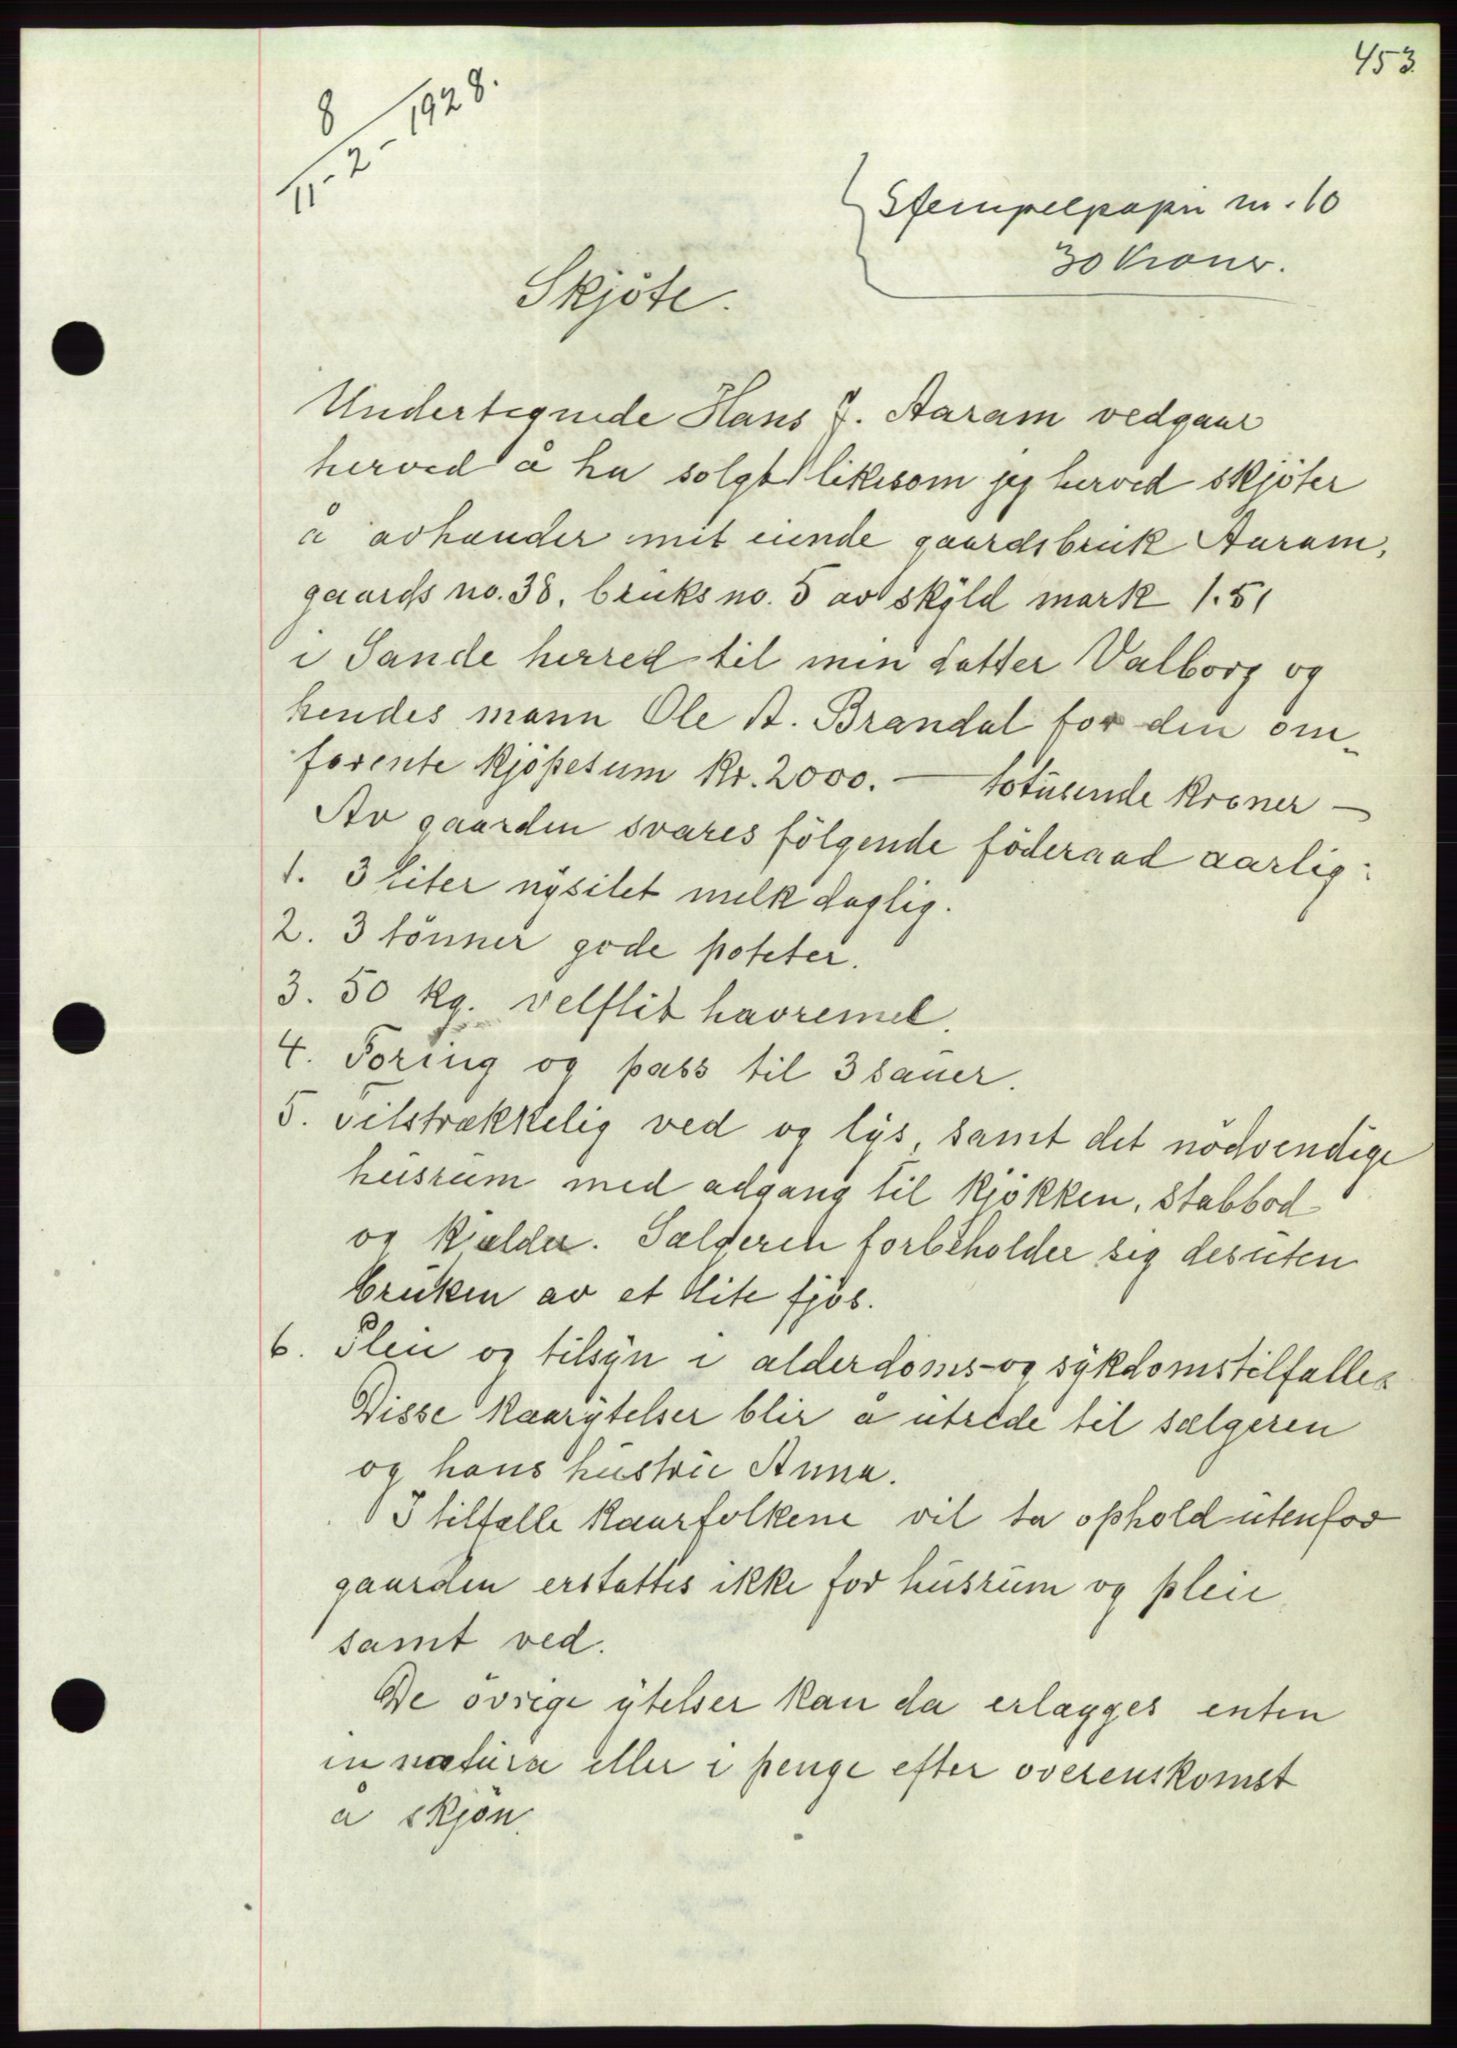 453
8
11-2-1928.
Stempelpapir nr. 10
30 Kroner.
Skjöte.
Undertegnede Hans J. Aaram vedgaar
herved å ha solgt likesom jeg herved skjöter
å avhænder mit eiende gaardsbruk Aaram,
gaards no. 38, bruks no. 5 av skyld mark 1.51
i Sande herred til min datter Valborg og
hendes mann Ole A. Brandal for den om-
forente kjöpesum kr. 2000. — totusende kroner —
Av gaarden svares fölgende föderaad aarlig:
1. 3 liter nysilet melk daglig.
2. 3 tönner gode poteter.
3. 50 kg. velflit havremel.
4. Foring og pass til 3 sauer.
5. Tilstrækkelig ved og lys, samt det nödvendige
husrum med adgang til kjökken, stabbod
og kjelder. Sælgeren forbeholder sig desuten
bruken av et lite fjös.
6. Pleie og tilsyn i alderdoms- og sykdomstilfælle.
Disse kaarytelser blir å utrede til sælgeren
og hans hustru Anna.
I tilfælle kaarfolkene vil ta ophold utenfor
gaarden erstattes ikke for husrum og pleie
samt ved.
De övrige ytelser kan da erlægges enten
in natura eller i penge efter overenskomst
å skjön.